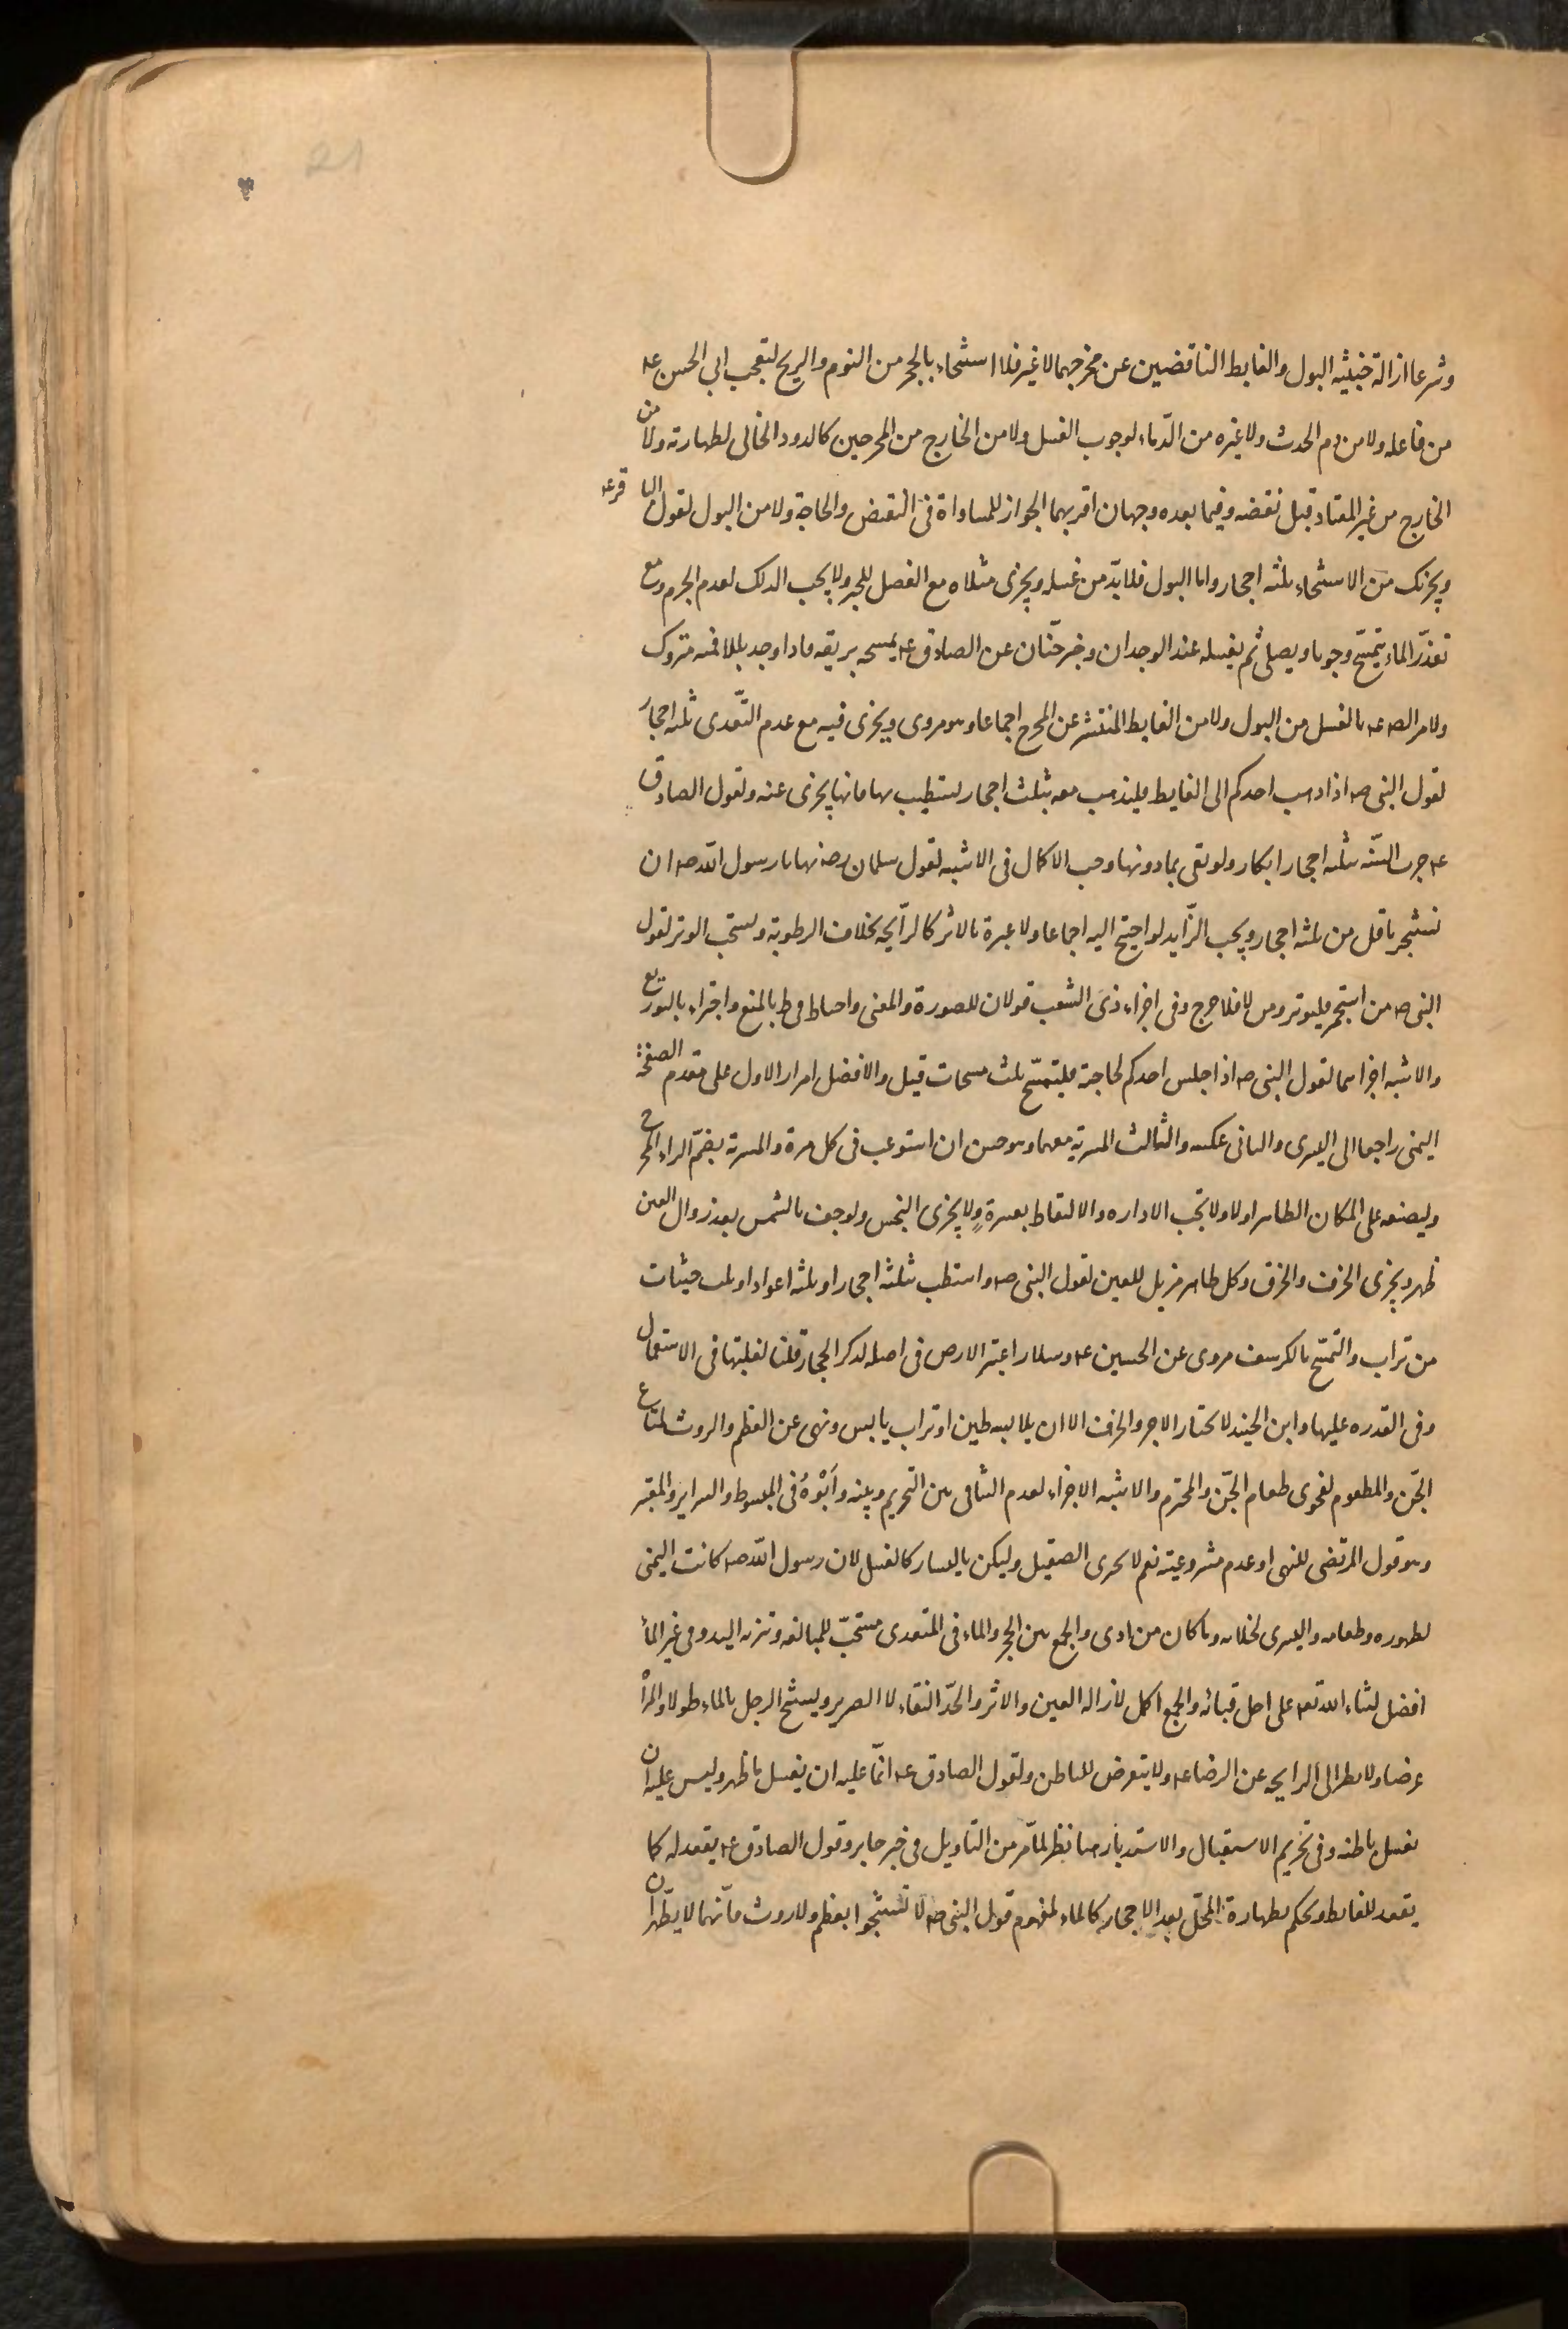 وشرعا ازالة خبثية البول والغايط الناقضين عن مخرجهما لا غير فلا استنجاء بالحجر من النوم والريح لتعجب ابي الحسن عـ
من فاعله ولا من دم الحدث ولا غيره من الدماء لوجوب الغسل ولا من الخارج من المخرجين كالدود الخالى لطهارته ولا من
الخارج من غير المعتاد قبل نقضه وفيما بعده وجهان اقربهما الجواز للمساواة فى النقض والحاجة ولا من البول لقول الباقر عـ
ويجزيك من الاستنجاء ثلثه احجار واما البول فلا بدّ من غسله ويجزى مثلاه مع الفصل للخبر ولا يجب الدلك لعدم الجرم ومع
تعذّر الماء يتمسّح وجوبا ويصلى ثم يغسله عند الوجدان وخبر حنّان عن الصادق عـ يمسحه بريقه فاذا وجد بللا فمنه متروك
ولامر الصـ عـ بالغسل من البول ولا من الغايط المنتشر عن المخرج اجماعا وهو مروى ويجزى فيه مع عدم التّعدى ثلثه احجار
لقول النبى صـ اذا ذهب احدكم الى الغايط فليذهب معه بثلث احجار يستطيب بها فانها يجزى عنه ولقول الصادق
عـ جرت السنّه بثلثه احجار ابكار ولو نقى بما دونها وجب الاكمال فى الاشبه لقول سلمان رضـ نهانا رسول الله صـ ان
نستنجى باقل من ثلثه احجار ويجب الزّايد لو احتيج اليه اجماعا ولا عبرة بالاثر كالرّايحه بخلاف الرطوبة ويستحب الوتر لقول
النبى صـ من استجمر فليوتر ومن لا فلا حرج وفى اجزاء ذى الشعب قولان للصورة والمعنى واحتاط فى ط بالمنع واجتزاء بالتوزيع
والاشبه اجزاهما لقول النبى صـ اذا جلس احدكم لحاجته فليتمسّح ثلث مسحات قيل والافضل امرار الاول على مقدم الصفحة
اليمنى راجعا الى اليسرى والثانى عكسه والثالث المسربة معهما وهو حسن ان استوعب فى كل مرة والمسربة بضمّ الراء المخرج
وليضعه على المكان الطاهر اولا ولا تجب الاداره والالتقاط بعسرة ولا يجزى النجس ولو جف بالشمس بعد زوال العين
طهر ويجزى الخزف والخرق وكل طاهر مزيل للعين لقول النبى صـ واستطب بثلثه احجار او ثلثه اعواد او ثلث حثيات
من تراب والتمسّح بالكرسف مروى عن الحسين عـ وسلار اعتبر الارض فى اصله لذكر الحجار قلنا لغلبتها فى الاستعمال
وفى القدره عليها وابن الجنيد لا يختار الاجر والخزف الا ان يلابسه طين او تراب يابس ونهى عن العظم والروث لمتاع
الجّن والمطعوم لفحوى طعام الجّن والمحترم والاشبه الاجزاء لعدم التنافى بين التحريم وبينه وأبوه فى المبسوط والسراير والمعتبر
وهو قول المرتضى للنهى او عدم مشروعيته نعم لا يجزى الصقيل وليكن باليسار كالغسل لان رسول الله صـ كانت اليمنى
لطهوره وطعامه واليسرى لخلائه وما كان من اذى والجمع بين الحجر والماء فى المتعدى مستحبّ للمبالغه وتنزيه اليد وفى غير الماء
افضل لثناء الله تعـ على اهل قباء والجمع اكمل لازاله العين والاثر والحدّ النقاء لا الصرير ويستنجى الرجل بالماء طولا والمرأة
عرضا ولا ينظر الى الرايحه عن الرضا عـ ولا يتعرض للباطن ولقول الصادق عـ انّما عليه ان يغسل ما ظهر وليس عليه ان
يغسل باطنه وفى تحريم الاستقبال والاستدبار هنا نظر لما مر من التاويل فى خبر جابر وقول الصادق عـ يقعد له كما
يقعد للغايط ويحكم بطهارة المحلّ بعد الاحجار كالماء لمفهوم قول النبى صـ لا تستنجوا بعظم ولا روث فانّهما لا يطهّران